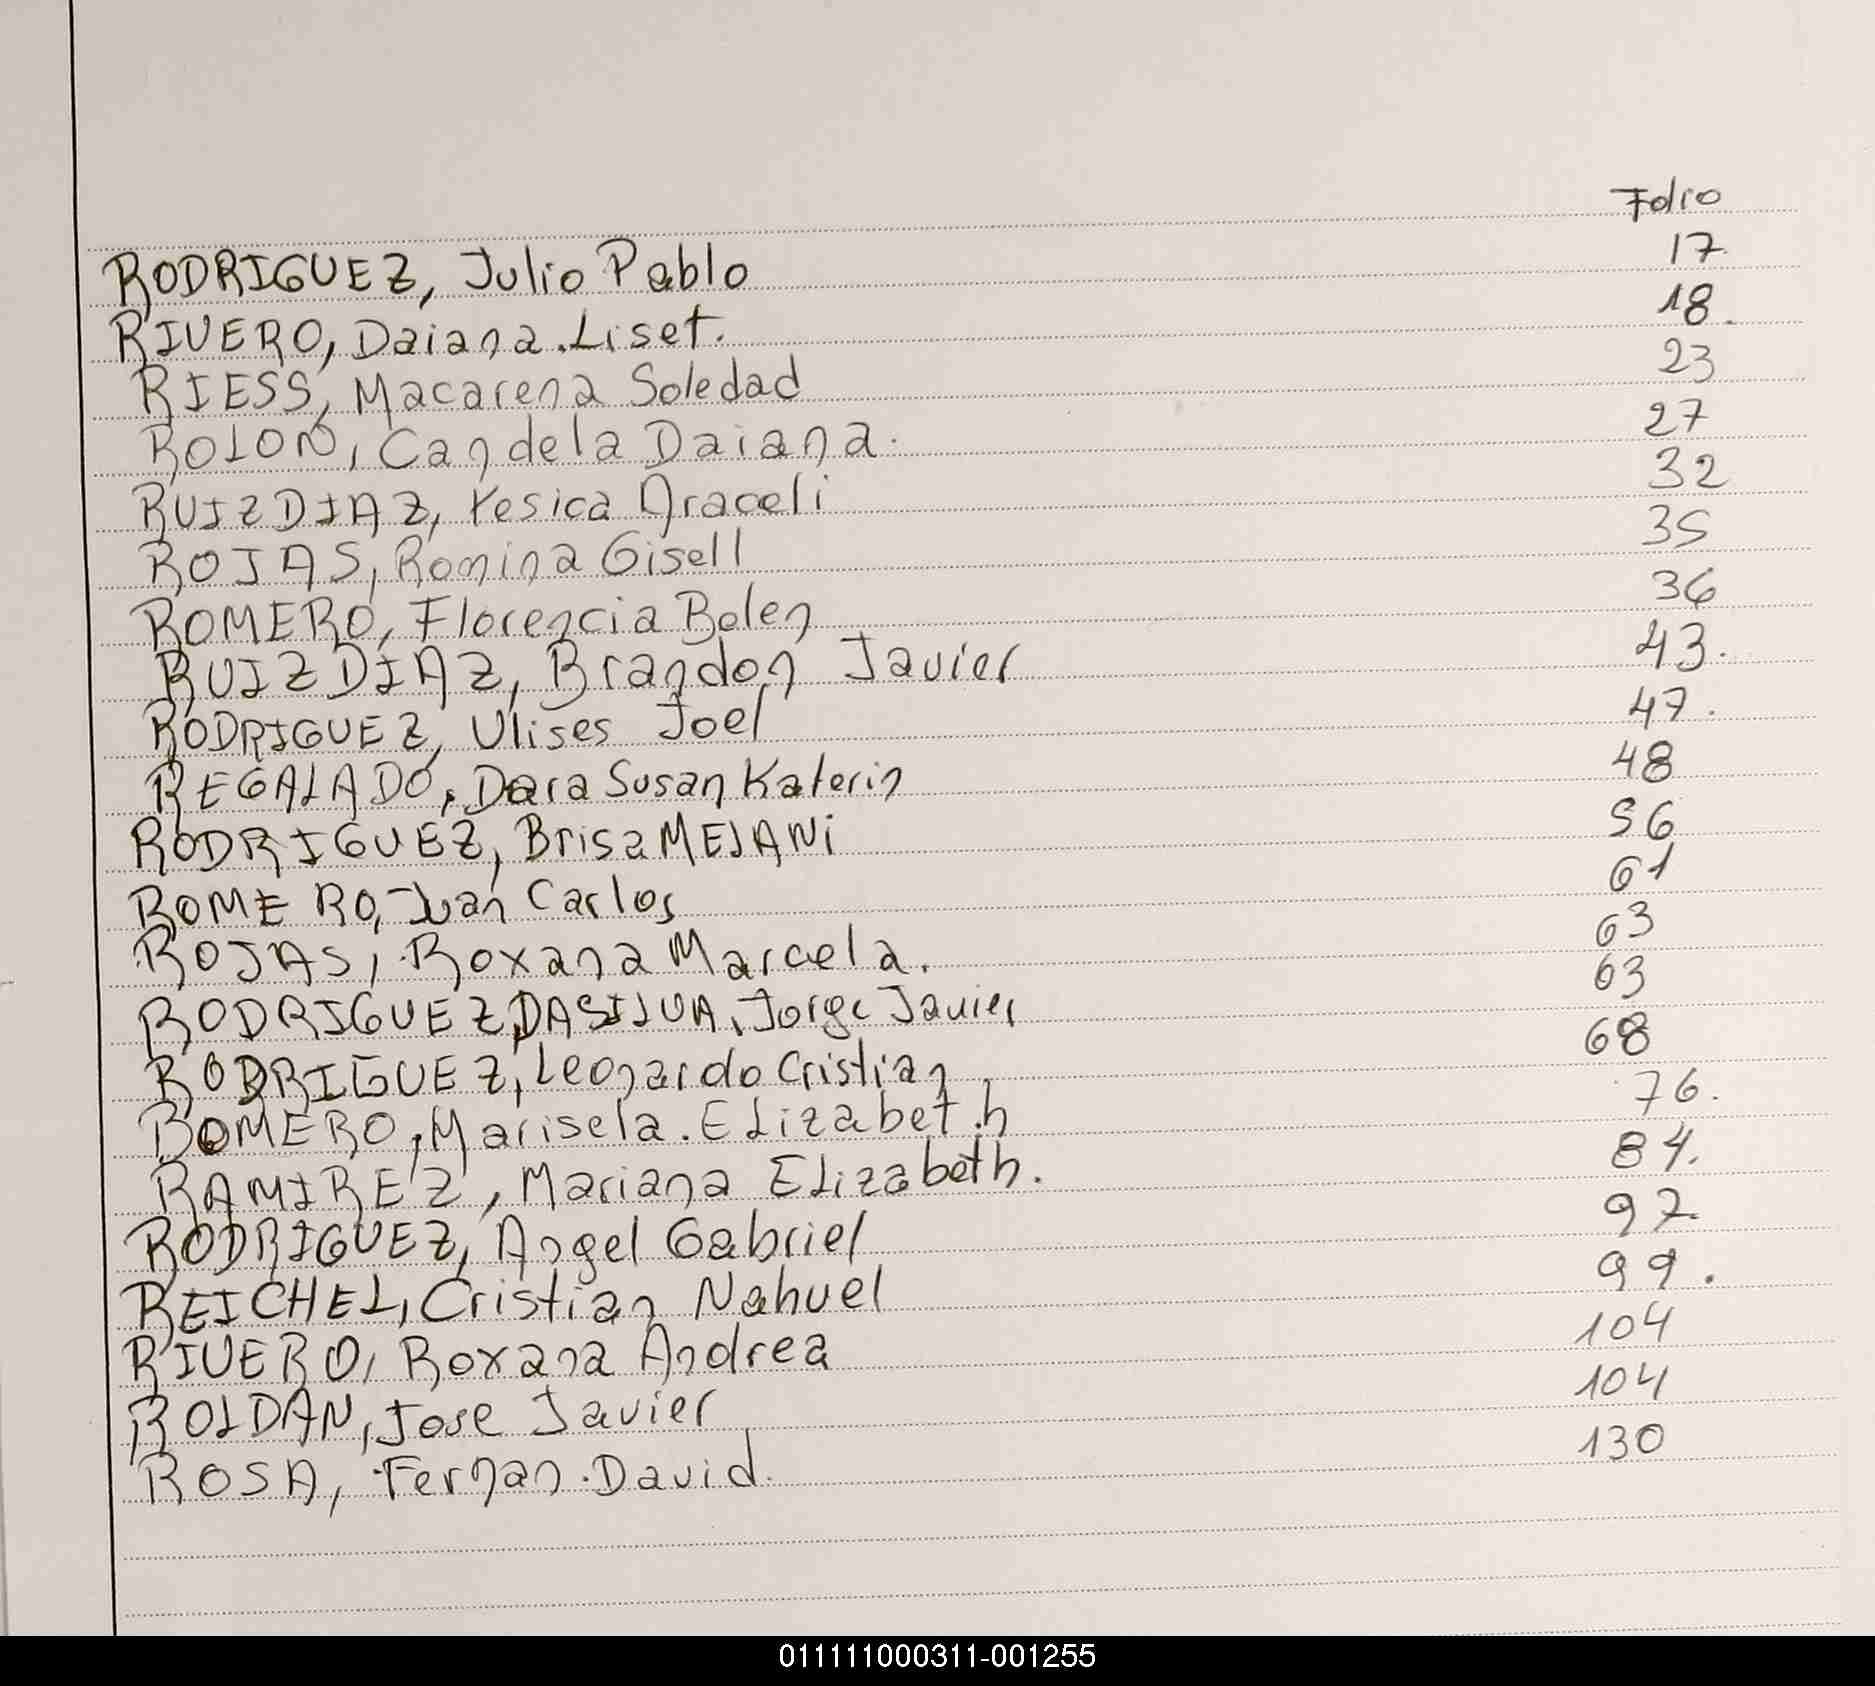 Folio
RODRIGUEZ, Julio Pablo 17.
RIVERO, Daiana. Liset. 18.
RIESS, Macarena Soledad 23
ROLON, Candela Daiana. 27
RUIZ DIAZ, Yesica Araceli 32
ROJAS, Romina Gisell 35
ROMERO, Florencia Belen 36
RUIZ DIAZ, Brandon Javier 43.
RODRIGUEZ, Ulises Joel 47.
REGALADO, Dara Susan Katerin 48
RODRIGUEZ, Brisa MELANi 56
ROMERO, Juan Carlos 61
ROJAS, Roxana Marcela. 63
RODRIGUEZ DASILVA, Jorge Javier 63
RODRIGUEZ, Leonardo Cristian 68
ROMERO, Marisela. Elizabeth 76.
RAMIREZ, Mariana Elizabeth. 84.
RODRIGUEZ, Angel Gabriel 97.
REICHEL, Cristian Nahuel 99.
RIVERO, Roxana Andrea 104
ROLDAN, Jose Javier 104
ROSA, Fernan. David. 130
011111000311-001255